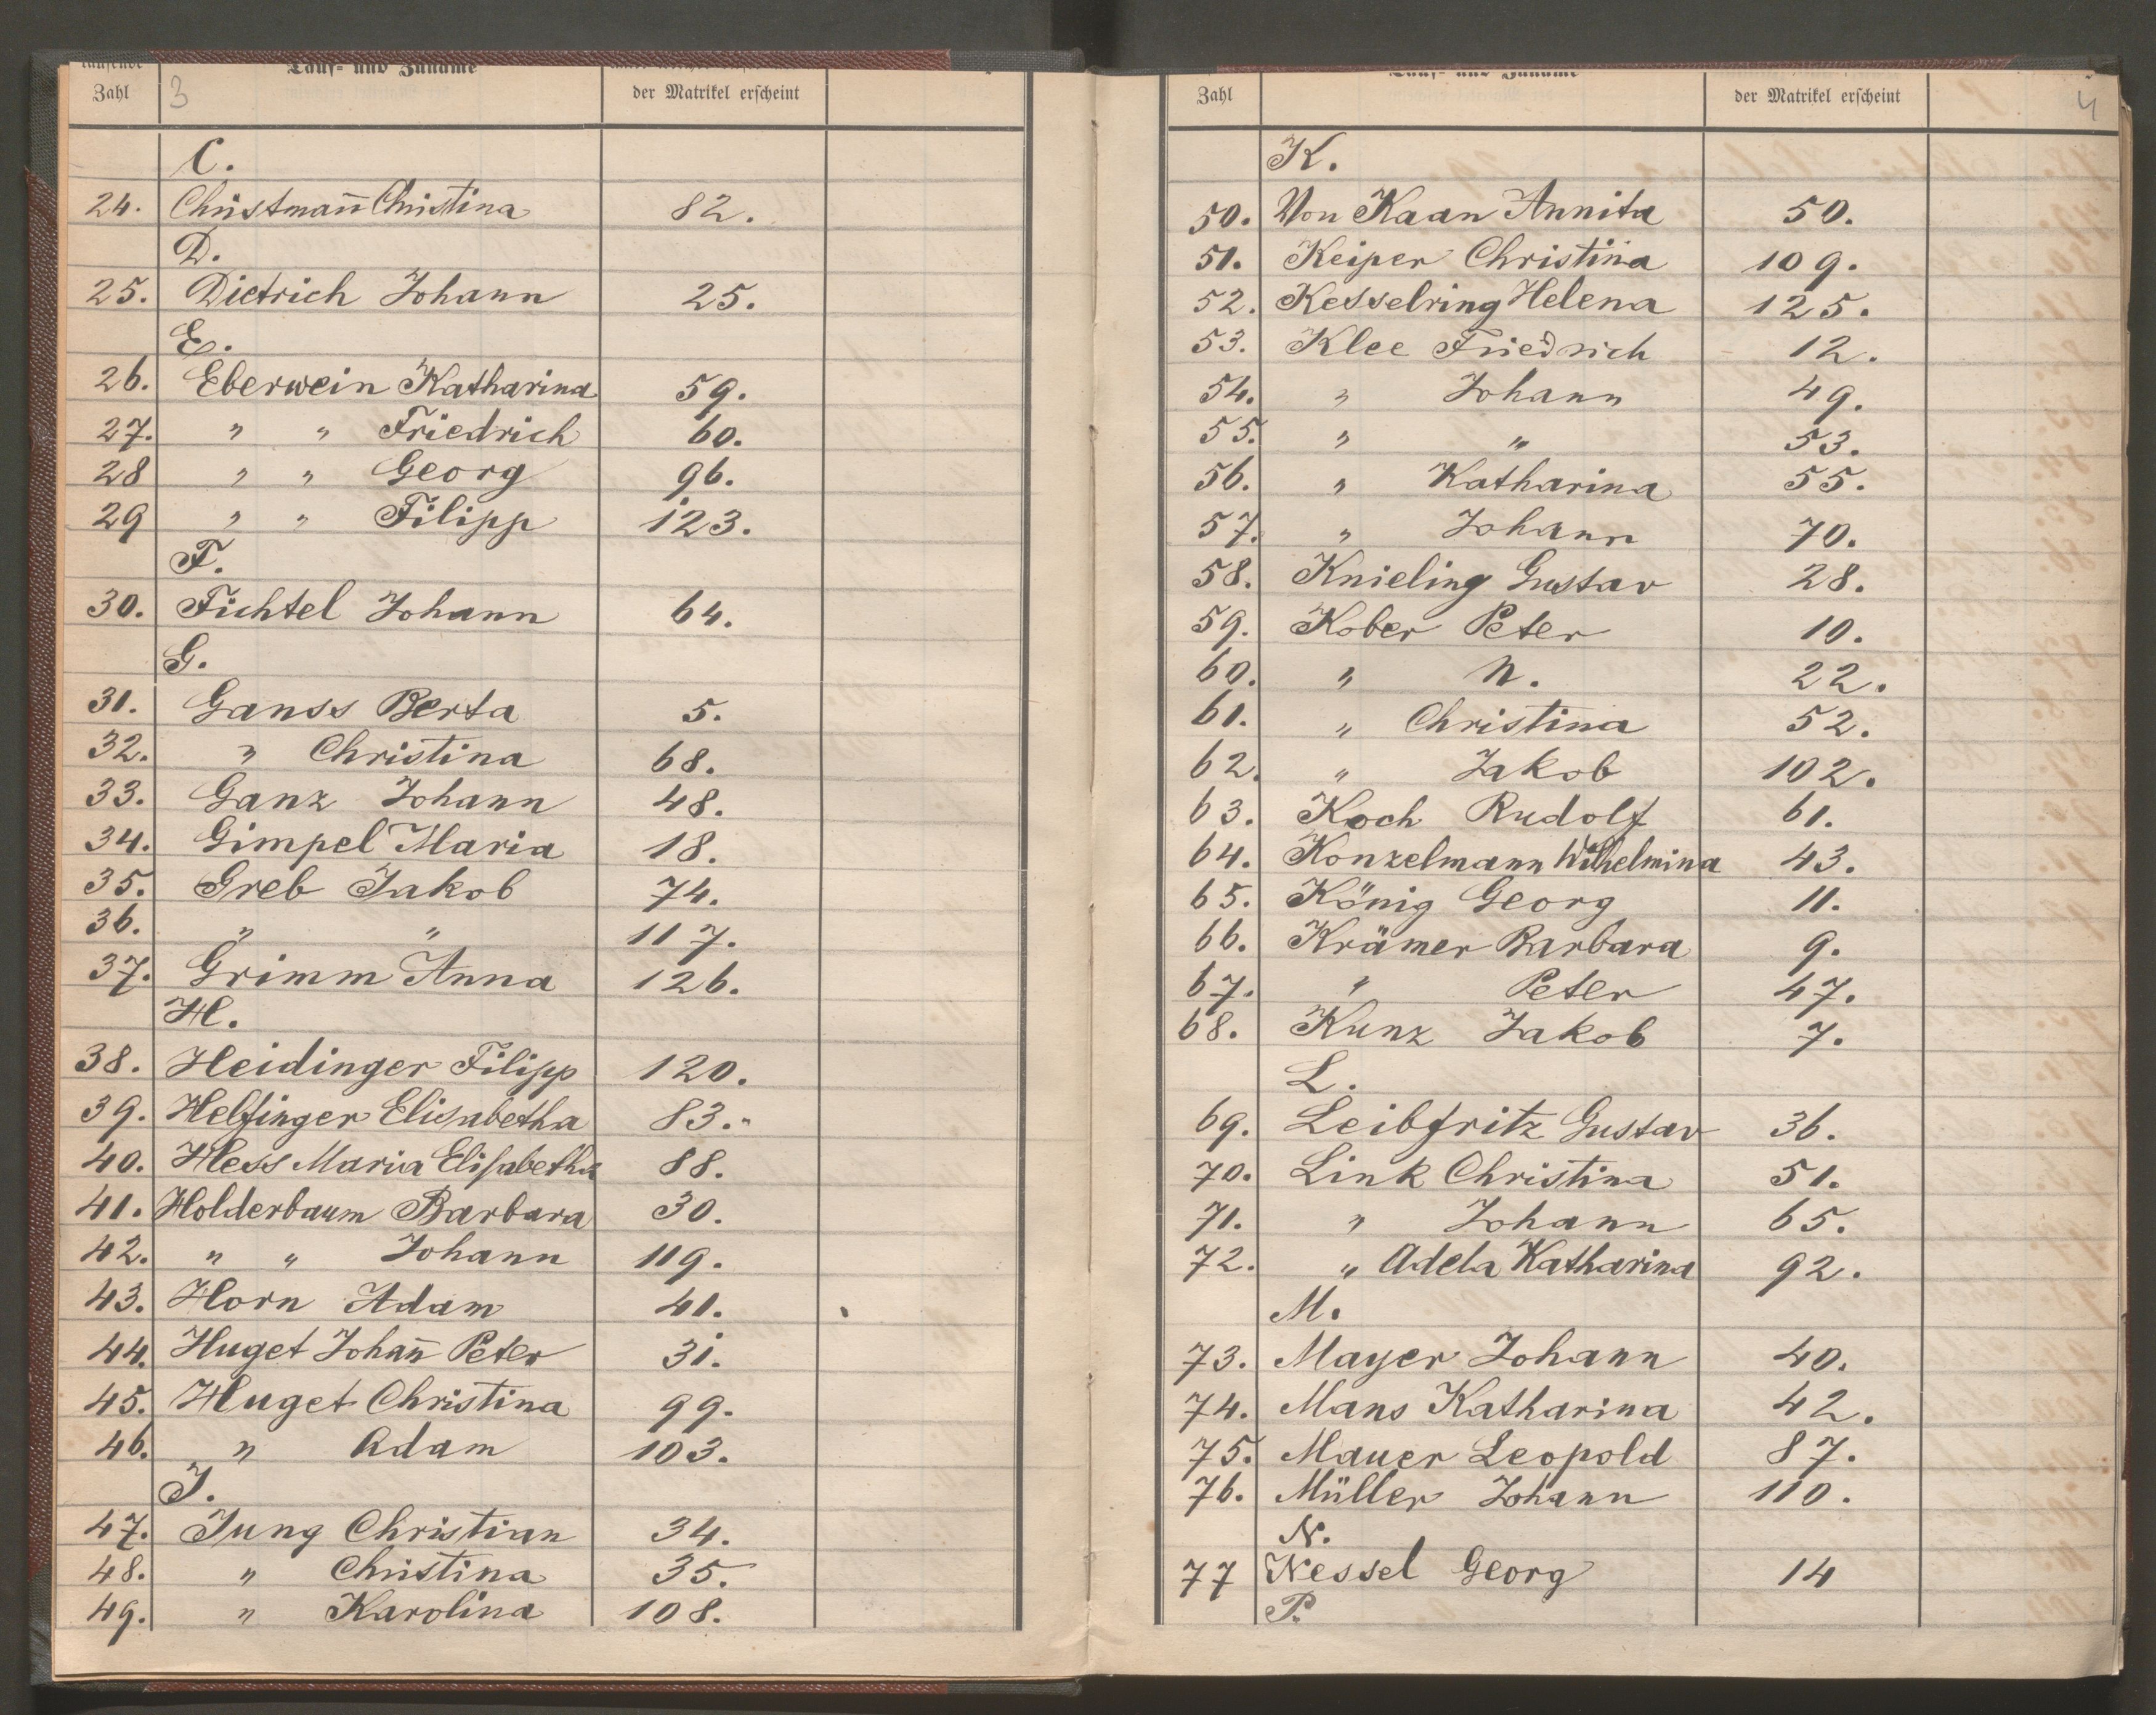 laufende Tauf- und Zuname
Zahl 3 der Matrikel erscheint
C.
24. Christman̄ Christina 82.
D.
25. Dietrich Johann 25.
E.
26. Eberwein Katharina 59.
27. " " Friedrich 60.
28 " " Georg 96.
29 " " Filipp 123.
F.
30. Fichtel Johann 64.
G.
31. Ganss Berta 5.
32. " Christina 68.
33. Ganz Johann 48.
34. Gimpel Maria 18.
35. Greb Jakob 74.
36. " " 117.
37. Grimm Anna 126.
H.
38. Heidinger Filipp 120.
39. Helfinger Elisabetha 83.
40. Hess Maria Elisabetha 88.
41. Holderbaum Barbara 30.
42. " " Johann 119.
43. Horn Adam 41.
44. Huget Johan̄ Peter 31.
45. Huget Christina 99.
46. " Adam 103.
J.
47. Jung Christian 34.
48. " Christina 35.
49. " Karolina 108.
Tauf- und Zuname
Zahl der Matrikel erscheint 4
K.
50. Von Kaan Annita 50.
51. Keiper Christina 109.
52. Kesselring Helena 125.
53. Klee Friedrich 12.
54. " Johann 49.
55. " " 53.
56. " Katharina 55.
57. " Johann 70.
58. Knieling Gustav 28.
59. Kober Peter 10.
60. " N. 22.
61. " Christina 52.
62. " Jakob 102.
63. Koch Rudolf 61.
64. Konzelmann Wilhelmina 43.
65. König Georg 11.
66. Krämer Barbara 9.
67. " Peter 47.
68. Kunz Jakob 7.
L.
69. Leibfritz Gustav 36.
70. Link Christina 51.
71. " Johann 65.
72. " Adela Katharina 92.
M.
73. Mayer Johann 40.
74. Mans Katharina 42.
75. Mauer Leopold 87.
76. Müller Johann 110.
N.
77 Nessel Georg 14
P.